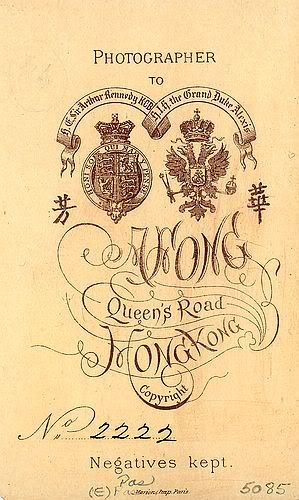 PHOTOGRAPHER
TO
H.E. Sir Arthur Kennedy K.C.B.
H.I.H. the Grand Duke Alexis
HONI SOIT QUI MAL Y PENSE
芳 華
AFONG
Queen's Road
HONGKONG
Copyright
No 2222
Negatives kept.
Pas
(E) 5085
Marion, Imp. Paris.